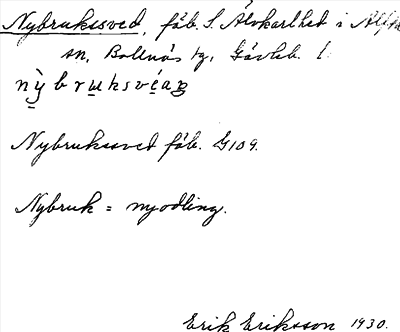 Nybrukssved, fäb. S. Älvkarlhed i Alfta
sn, Bollnäs tg, Gävleb. l.
nỳbruksvéaʒ
Nybrukssved fäb. G109.
Nybruk = nyodling.
Erik Eriksson 1930.